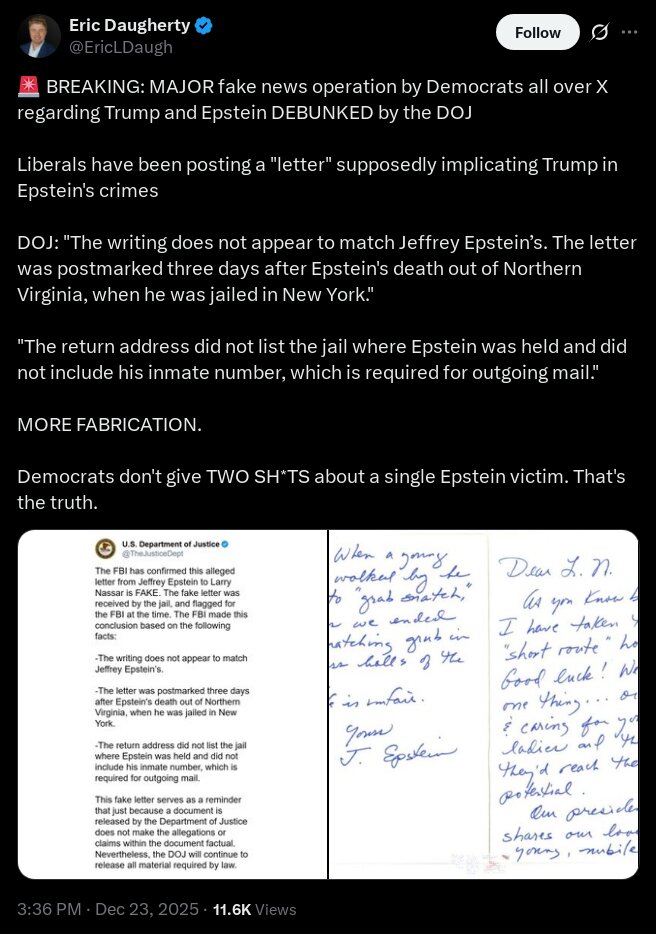 Eric Daugherty
@EricLDaugh
Follow
🚨 BREAKING: MAJOR fake news operation by Democrats all over X
regarding Trump and Epstein DEBUNKED by the DOJ
Liberals have been posting a "letter" supposedly implicating Trump in
Epstein's crimes
DOJ: "The writing does not appear to match Jeffrey Epstein’s. The letter
was postmarked three days after Epstein's death out of Northern
Virginia, when he was jailed in New York."
"The return address did not list the jail where Epstein was held and did
not include his inmate number, which is required for outgoing mail."
MORE FABRICATION.
Democrats don't give TWO SH*TS about a single Epstein victim. That's
the truth.
U.S. Department of Justice
@TheJusticeDept
The FBI has confirmed this alleged
letter from Jeffrey Epstein to Larry
Nassar is FAKE. The fake letter was
received by the jail, and flagged for
the FBI at the time. The FBI made this
conclusion based on the following
facts:
-The writing does not appear to match
Jeffrey Epstein's.
-The letter was postmarked three days
after Epstein's death out of Northern
Virginia, when he was jailed in New
York.
-The return address did not list the jail
where Epstein was held and did not
include his inmate number, which is
required for outgoing mail.
This fake letter serves as a reminder
that just because a document is
released by the Department of Justice
does not make the allegations or
claims within the document factual.
Nevertheless, the DOJ will continue to
release all material required by law.
When a young
walked by he
to "grab snatch,"
we ended
natching grub in
ss halls of the
is unfair.
Yours
J. Epstein
Dear L. N.
As you know b
I have taken
"short route" ho
Good luck! We
one thing... ou
& caring for yo
ladies and th
they'd reach the
potential.
Our preside
shares our lov
young, nubile
3:36 PM · Dec 23, 2025 · 11.6K Views